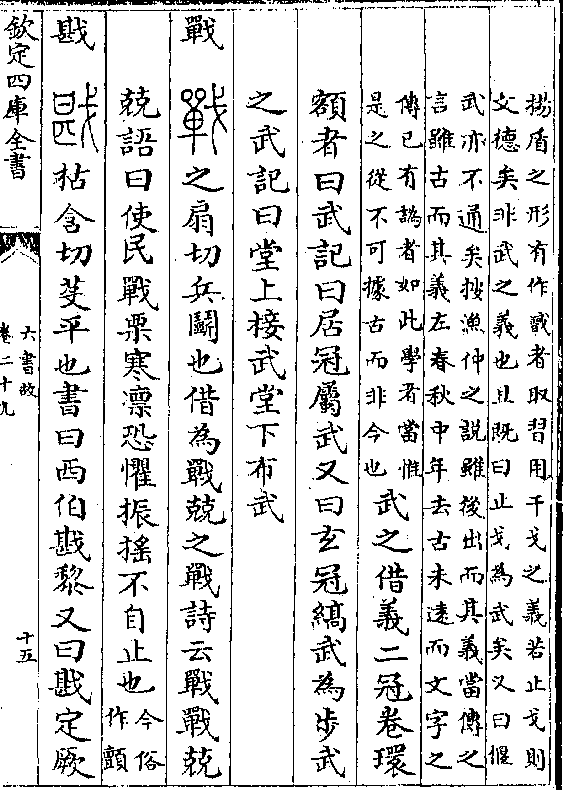 揚盾之形有作者取習用干戈之義若止戈則
文德矣非武之義也且既曰止戈為武矣又曰偃
武亦不通矣按漁仲之説雖後出而其義當傳之
言雖古而其義左春秋中年去古未逺而文字之
傳已有譌者如此學者當惟
是之從不可據古而非今也
武之借義二冠卷環
額者曰武記曰居冠屬武又曰玄冠縞武為步武
之武記曰堂上接武堂下布武
戰 戰 之扇切兵鬭也借為戰兢之戰詩云戰戰兢
兢語曰使民戰栗寒凛恐懼振摇不自止也
今俗
作顫
戡 戡 枯含切芟平也書曰西伯戡黎又曰戡定厥
欽定四庫全書
六書故
卷二十九
十五